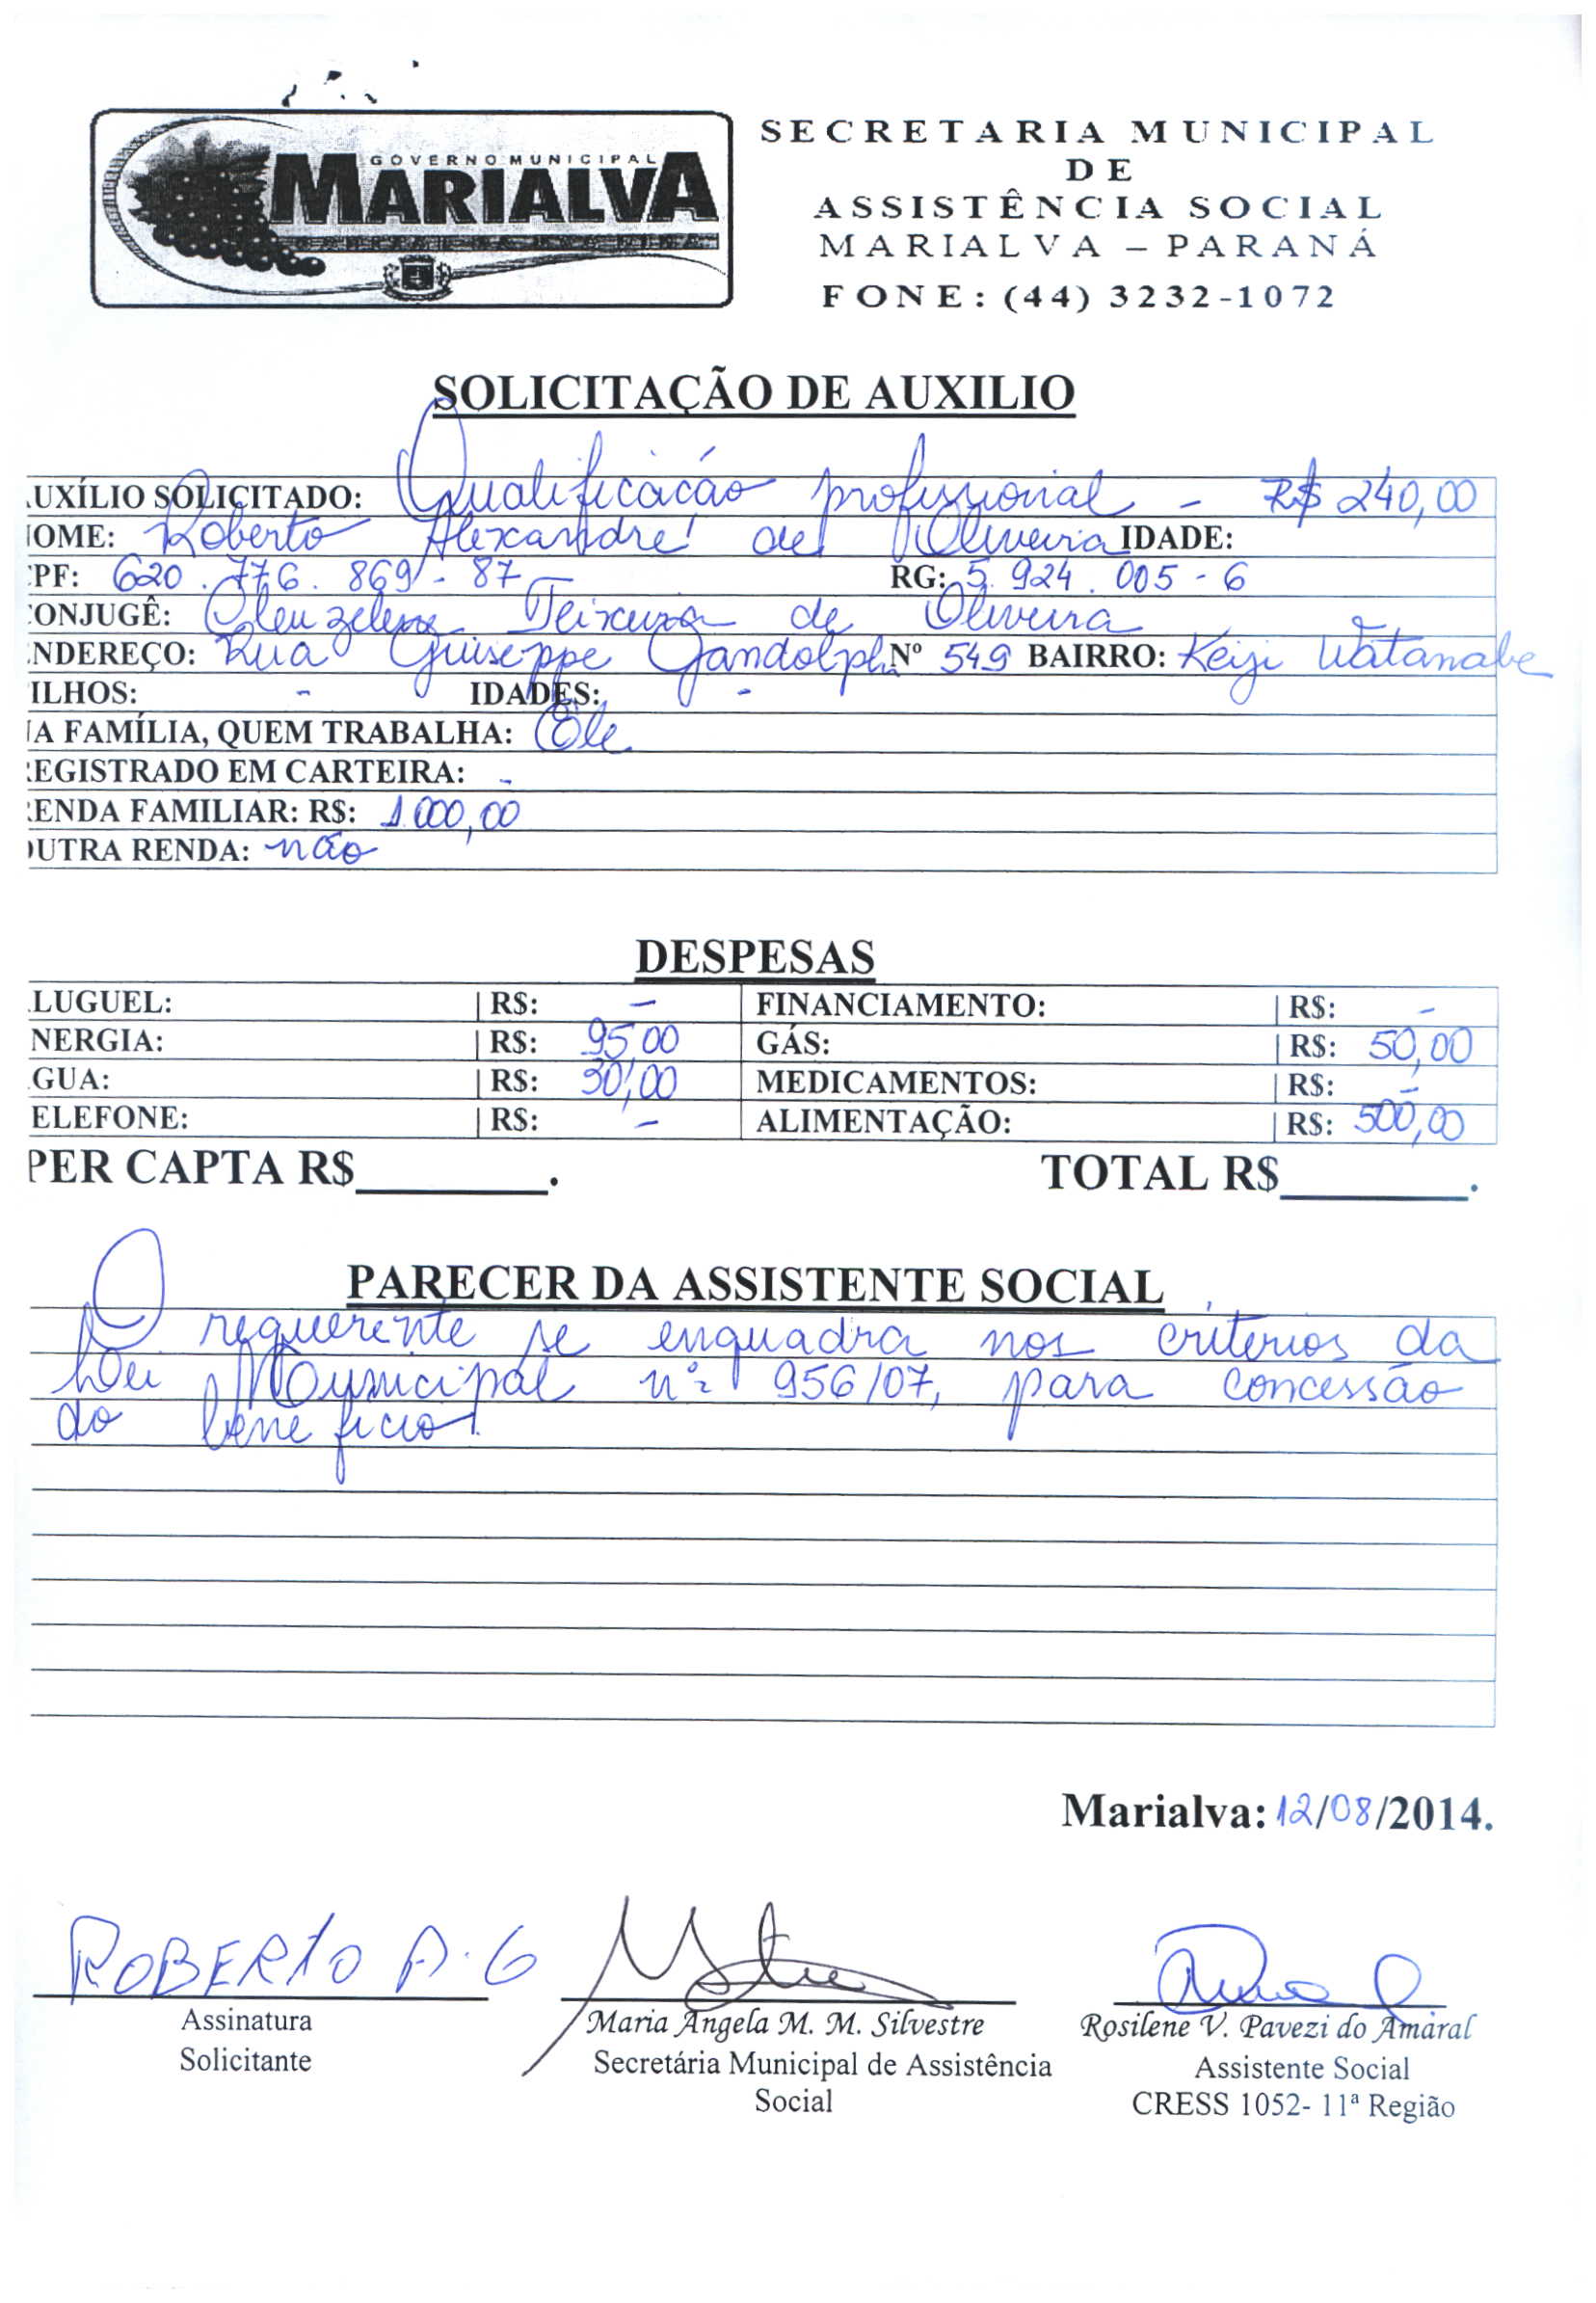 GOVERNO MUNICIPAL
MARIALVA
SECRETARIA MUNICIPAL
DE
ASSISTÊNCIA SOCIAL
MARIALVA – PARANÁ
FONE: (44) 3232-1072
SOLICITAÇÃO DE AUXILIO
UXÍLIO SOLICITADO: Qualificacão profissional - R$ 240,00
OME: Roberto Alexandre de Oliveira IDADE:
PF: 620.776.869-87 RG: 5.924.005-6
ONJUGÊ: Cleuzelene Teixeira de Oliveira
NDEREÇO: Rua Giuseppe Gandolphi Nº 549 BAIRRO: Keiji Watanabe
ILHOS: - IDADES: -
A FAMÍLIA, QUEM TRABALHA: Ele
EGISTRADO EM CARTEIRA: -
ENDA FAMILIAR: R$: 1.000,00
UTRA RENDA: não
DESPESAS
LUGUEL: R$: - FINANCIAMENTO: R$: -
NERGIA: R$: 95,00 GÁS: R$: 50,00
GUA: R$: 30,00 MEDICAMENTOS: R$: -
ELEFONE: R$: - ALIMENTAÇÃO: R$: 500,00
PER CAPTA R$________. TOTAL R$________.
PARECER DA ASSISTENTE SOCIAL
O requerente se enquadra nos critérios da
Lei Municipal nº 956/07, para concessão
do beneficio.
Marialva: 12/08/2014.
ROBERTO A. G
Assinatura
Solicitante
Maria Angela M. M. Silvestre
Secretária Municipal de Assistência
Social
Rosilene V. Pavezi do Amaral
Assistente Social
CRESS 1052- 11ª Região